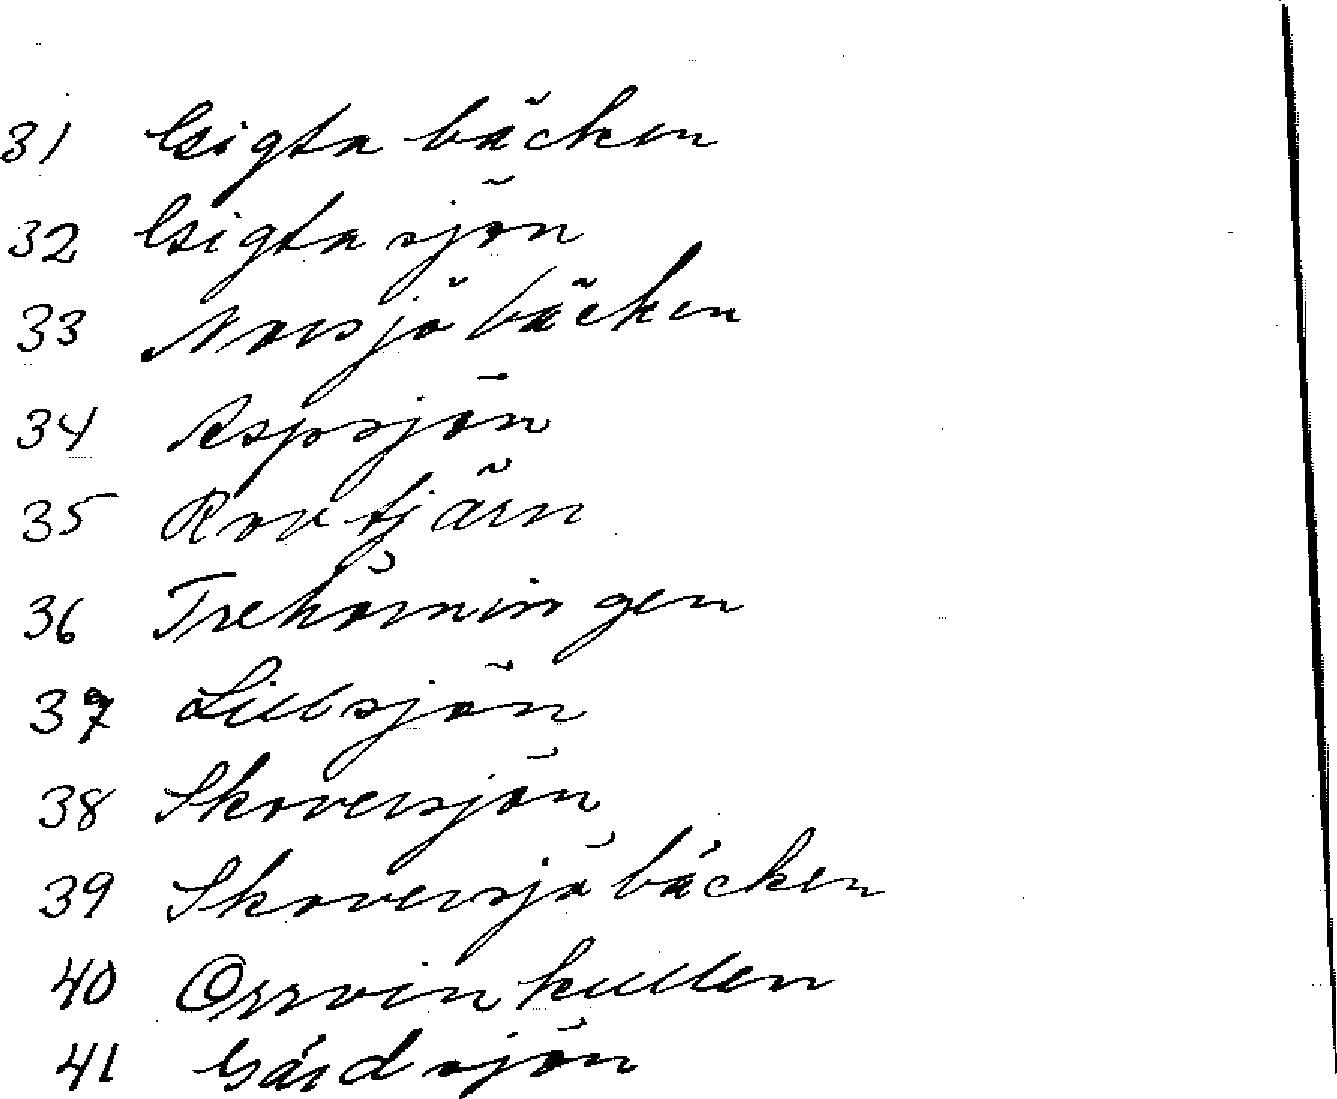 31 Gigta bäcken
32 Gigta sjön
33 Norsjö bäcken
34 Aspsjön
35 Rovtjärn
36 Trehörningen
37 Lillsjön
38 Skoversjön
39 Skoversjö bäcken
40 Orrvin kullen
41 Gårdsjön